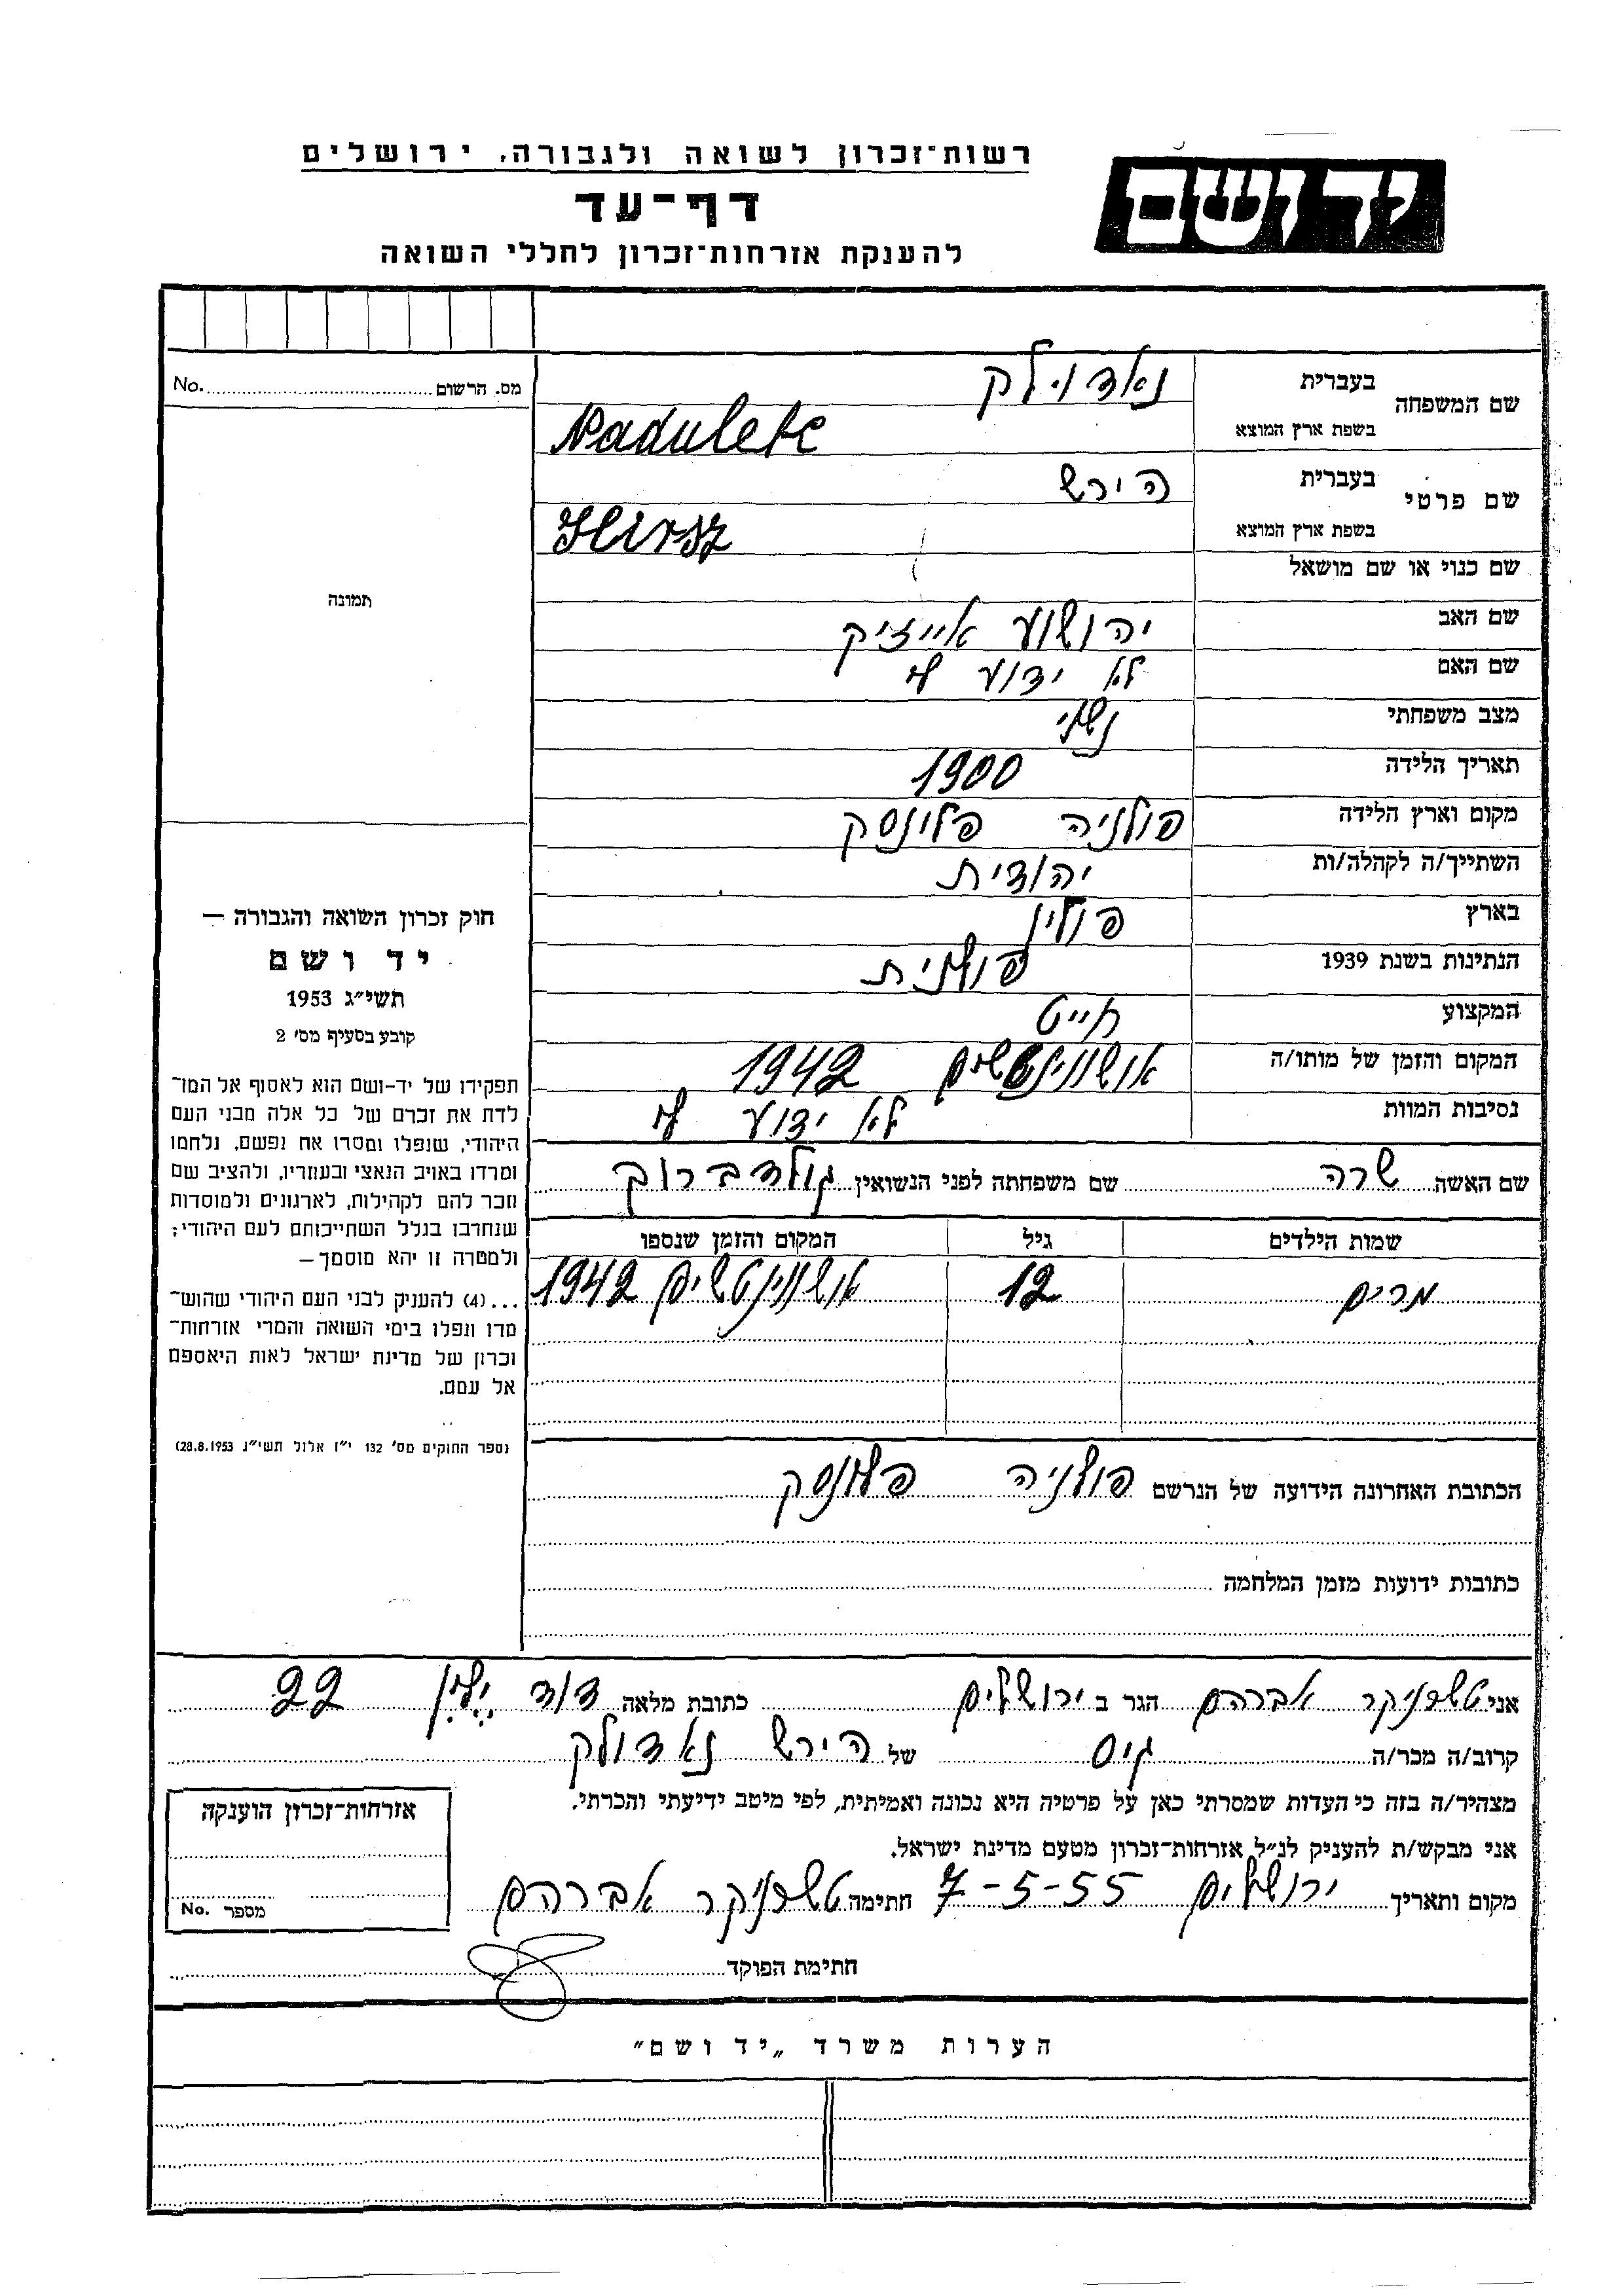 רשות־זכרון לשואה ולגבורה, ירושלים
יד ושם
דף־עד
להענקת אזרחות־זכרון לחללי השואה
No. מס. הרשום
שם המשפחה
בעברית נאדוילק
בשפת ארץ המוצא Nadulek
שם פרטי
בעברית הירש
בשפת ארץ המוצא Hirsz
שם כנוי או שם מושאל
תמונה
שם האב יהושוע אייזיק
שם האם לא ידוע לי
מצב משפחתי נשוי
תאריך הלידה 1900
מקום וארץ הלידה פולניה פלונסק
השתייך/ה לקהלה/ות יהודית
בארץ פולין
הנתינות בשנת 1939 פולנית
המקצוע חייט
המקום והזמן של מותו/ה אושווינצשים 1942
נסיבות המוות לא ידוע לי
שם האשה שרה שם משפחתה לפני הנשואין גולדברוך
שמות הילדים גיל המקום והזמן שנספו
מרים 12 אושווינטשים 1942
חוק זכרון השואה והגבורה —
יד ושם
תשי״ג 1953
קובע בסעיף מס׳ 2
תפקידו של יד-ושם הוא לאסוף אל המו־
לדת את זכרם של כל אלה מבני העם
היהודי, שנפלו ומסרו את נפשם, נלחמו
ומרדו באויב הנאצי ובעוזריו, ולהציב שם
וזכר להם לקהילות, לארגונים ולמוסדות
שנחרבו בגלל השתייכותם לעם היהודי;
ולמטרה זו יהא מוסמך —
...(4) להעניק לבני העם היהודי שהוש־
מדו ונפלו בימי השואה והמרי אזרחות־
זכרון של מדינת ישראל לאות היאספם
אל עמם.
(ספר החוקים מס׳ 132 י״ז אלול תשי״ג 28.8.1953)
הכתובת האחרונה הידועה של הנרשם פולניה פלונסק
כתובות ידועות מזמן המלחמה
אני טשרניקר אברהם הגר ב ירושלים כתובת מלאה דוד ילין 22
קרוב/ה מכר/ה גיס של הירש נאדולק
מצהיר/ה בזה כי העדות שמסרתי כאן על פרטיה היא נכונה ואמיתית, לפי מיטב ידיעתי והכרתי.
אני מבקש/ת להעניק לנ״ל אזרחות־זכרון מטעם מדינת ישראל.
מקום ותאריך ירושלים 7-5-55 חתימה טשרניקר אברהם
חתימת הפוקד
אזרחות־זכרון הוענקה
No. מספר
הערות משרד „יד ושם״